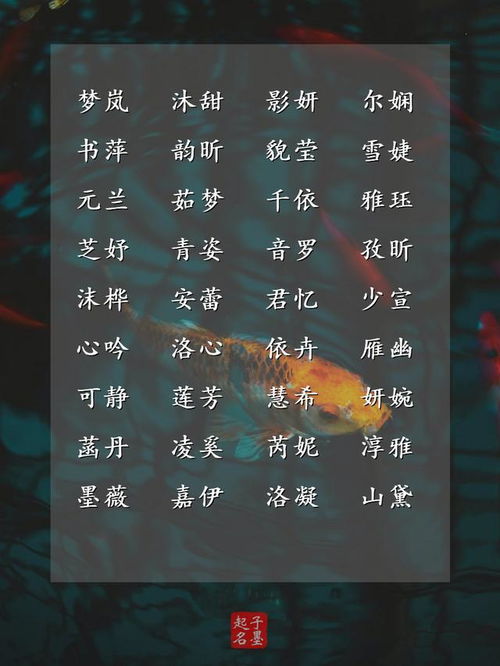 梦岚 沐甜 影妍 尔娴
书萍 韵昕 貌莹 雪婕
元兰 茹梦 千依 雅珏
芝妤 青姿 音罗 孜昕
沫桦 安蕾 君忆 少宣
心吟 洛心 依卉 雁幽
可静 莲芳 慧希 妍婉
菡丹 凌奚 芮妮 淳雅
墨薇 嘉伊 洛凝 山黛
子墨
起名